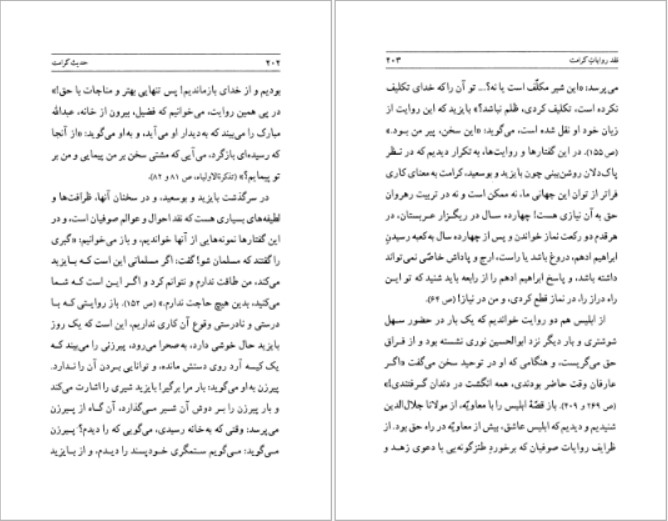 ۲۰۲ حدیث کرامت
بودیم و از خدای بازماندیم! پس تنهایی بهتر و مناجات با حق!»
در پی همین روایت، می‌خوانیم که فضیل، بیرون از خانه، عبدالله
مبارک را می‌بیند که به‌دیدار او می‌آید، و به‌او می‌گوید: «از آنجا
که رسیده‌ای بازگرد، می‌آیی که مشتی سخن بر من پیمایی و من بر
تو پیمایم؟» (تذکرةالاولیاء، ص ۸۱ و ۸۲).
در سرگذشت بایزید و بوسعید، و در سخنان آنها، ظرافت‌ها و
لطیفه‌های بسیاری هست که نقد احوال و عوالم صوفیان است، و در
این گفتارها نمونه‌هایی از آنها خواندیم، و باز می‌خوانیم: «گبری
را گفتند که مسلمان شو! گفت: اگر مسلمانی این است که بایزید
می‌کند، من طاقت ندارم و نتوانم کرد و اگر این است که شما
می‌کنید، بدین هیچ حاجت ندارم.» (ص ۱۵۲). باز روایتی که با
درستی و نادرستی وقوع آن کاری نداریم، این است که یک روز
بایزید حال خوشی دارد، به‌صحرا می‌رود، پیرزنی را می‌بیند که
یک کیسه آرد روی دستش مانده، و توانایی بردن آن را ندارد.
پیرزن به‌او می‌گوید: بار مرا برگیر! بایزید شیری را اشارت می‌کند
و بار پیرزن را بر دوش آن شیر می‌گذارد، آن گاه از پیرزن
می‌پرسد: وقتی که به‌خانه رسیدی، می‌گویی که را دیدم؟ پیرزن
می‌گوید: می‌گویم ستمگری خودپسند را دیدم، و از بایزید
نقد روایات کرامت ۲۰۳
می‌پرسد: «این شیر مکلّف است یا نه؟... تو آن را که خدای تکلیف
نکرده است، تکلیف کردی، ظُلم نباشد؟» بایزید که این روایت از
زبان خود او نقل شده است، می‌گوید: «این سخن، پیر من بود.»
(ص ۱۵۵). در این گفتارها و روایت‌ها، به‌تکرار دیدیم که در نظر
پاک‌دلان روشن‌بینی چون بایزید و بوسعید، کرامت به‌معنای کاری
فراتر از توان این جهانی ما، نه ممکن است و نه در تربیت رهروان
حق به آن نیازی هست! چهارده سال در ریگزار عربستان، در
هرقدم دو رکعت نماز خواندن و پس از چهارده سال به‌کعبه رسیدنِ
ابراهیم ادهم، دروغ باشد یا راست، ارج و پاداش خاصّی نمی‌تواند
داشته باشد، و پاسخ ابراهیم ادهم را از رابعه باید شنید که تو این
راه دراز را، در نماز قطع کردی، و من در نیاز! (ص ۶۴).
از ابلیس هم دو روایت خواندیم که یک بار در حضور سهل
شوشتری و بار دیگر نزد ابوالحسین نوری نشسته بود و از فراق
حق می‌گریست، و هنگامی که او در توحید سخن می‌گفت «اگر
عارفان وقت حاضر بودندی، همه انگشت در دندان گرفتندی!»
(ص ۲۶۹ و ۴۰۹). باز قصّهٔ ابلیس را با معاویّه، از مولانا جلال‌الدین
شنیدیم و دیدیم که ابلیس عاشق، بیش از معاویّه در راه حق بود. از
ظرایف روایات صوفیان که برخوردِ طنزگونه‌یی با دعوی زهد و